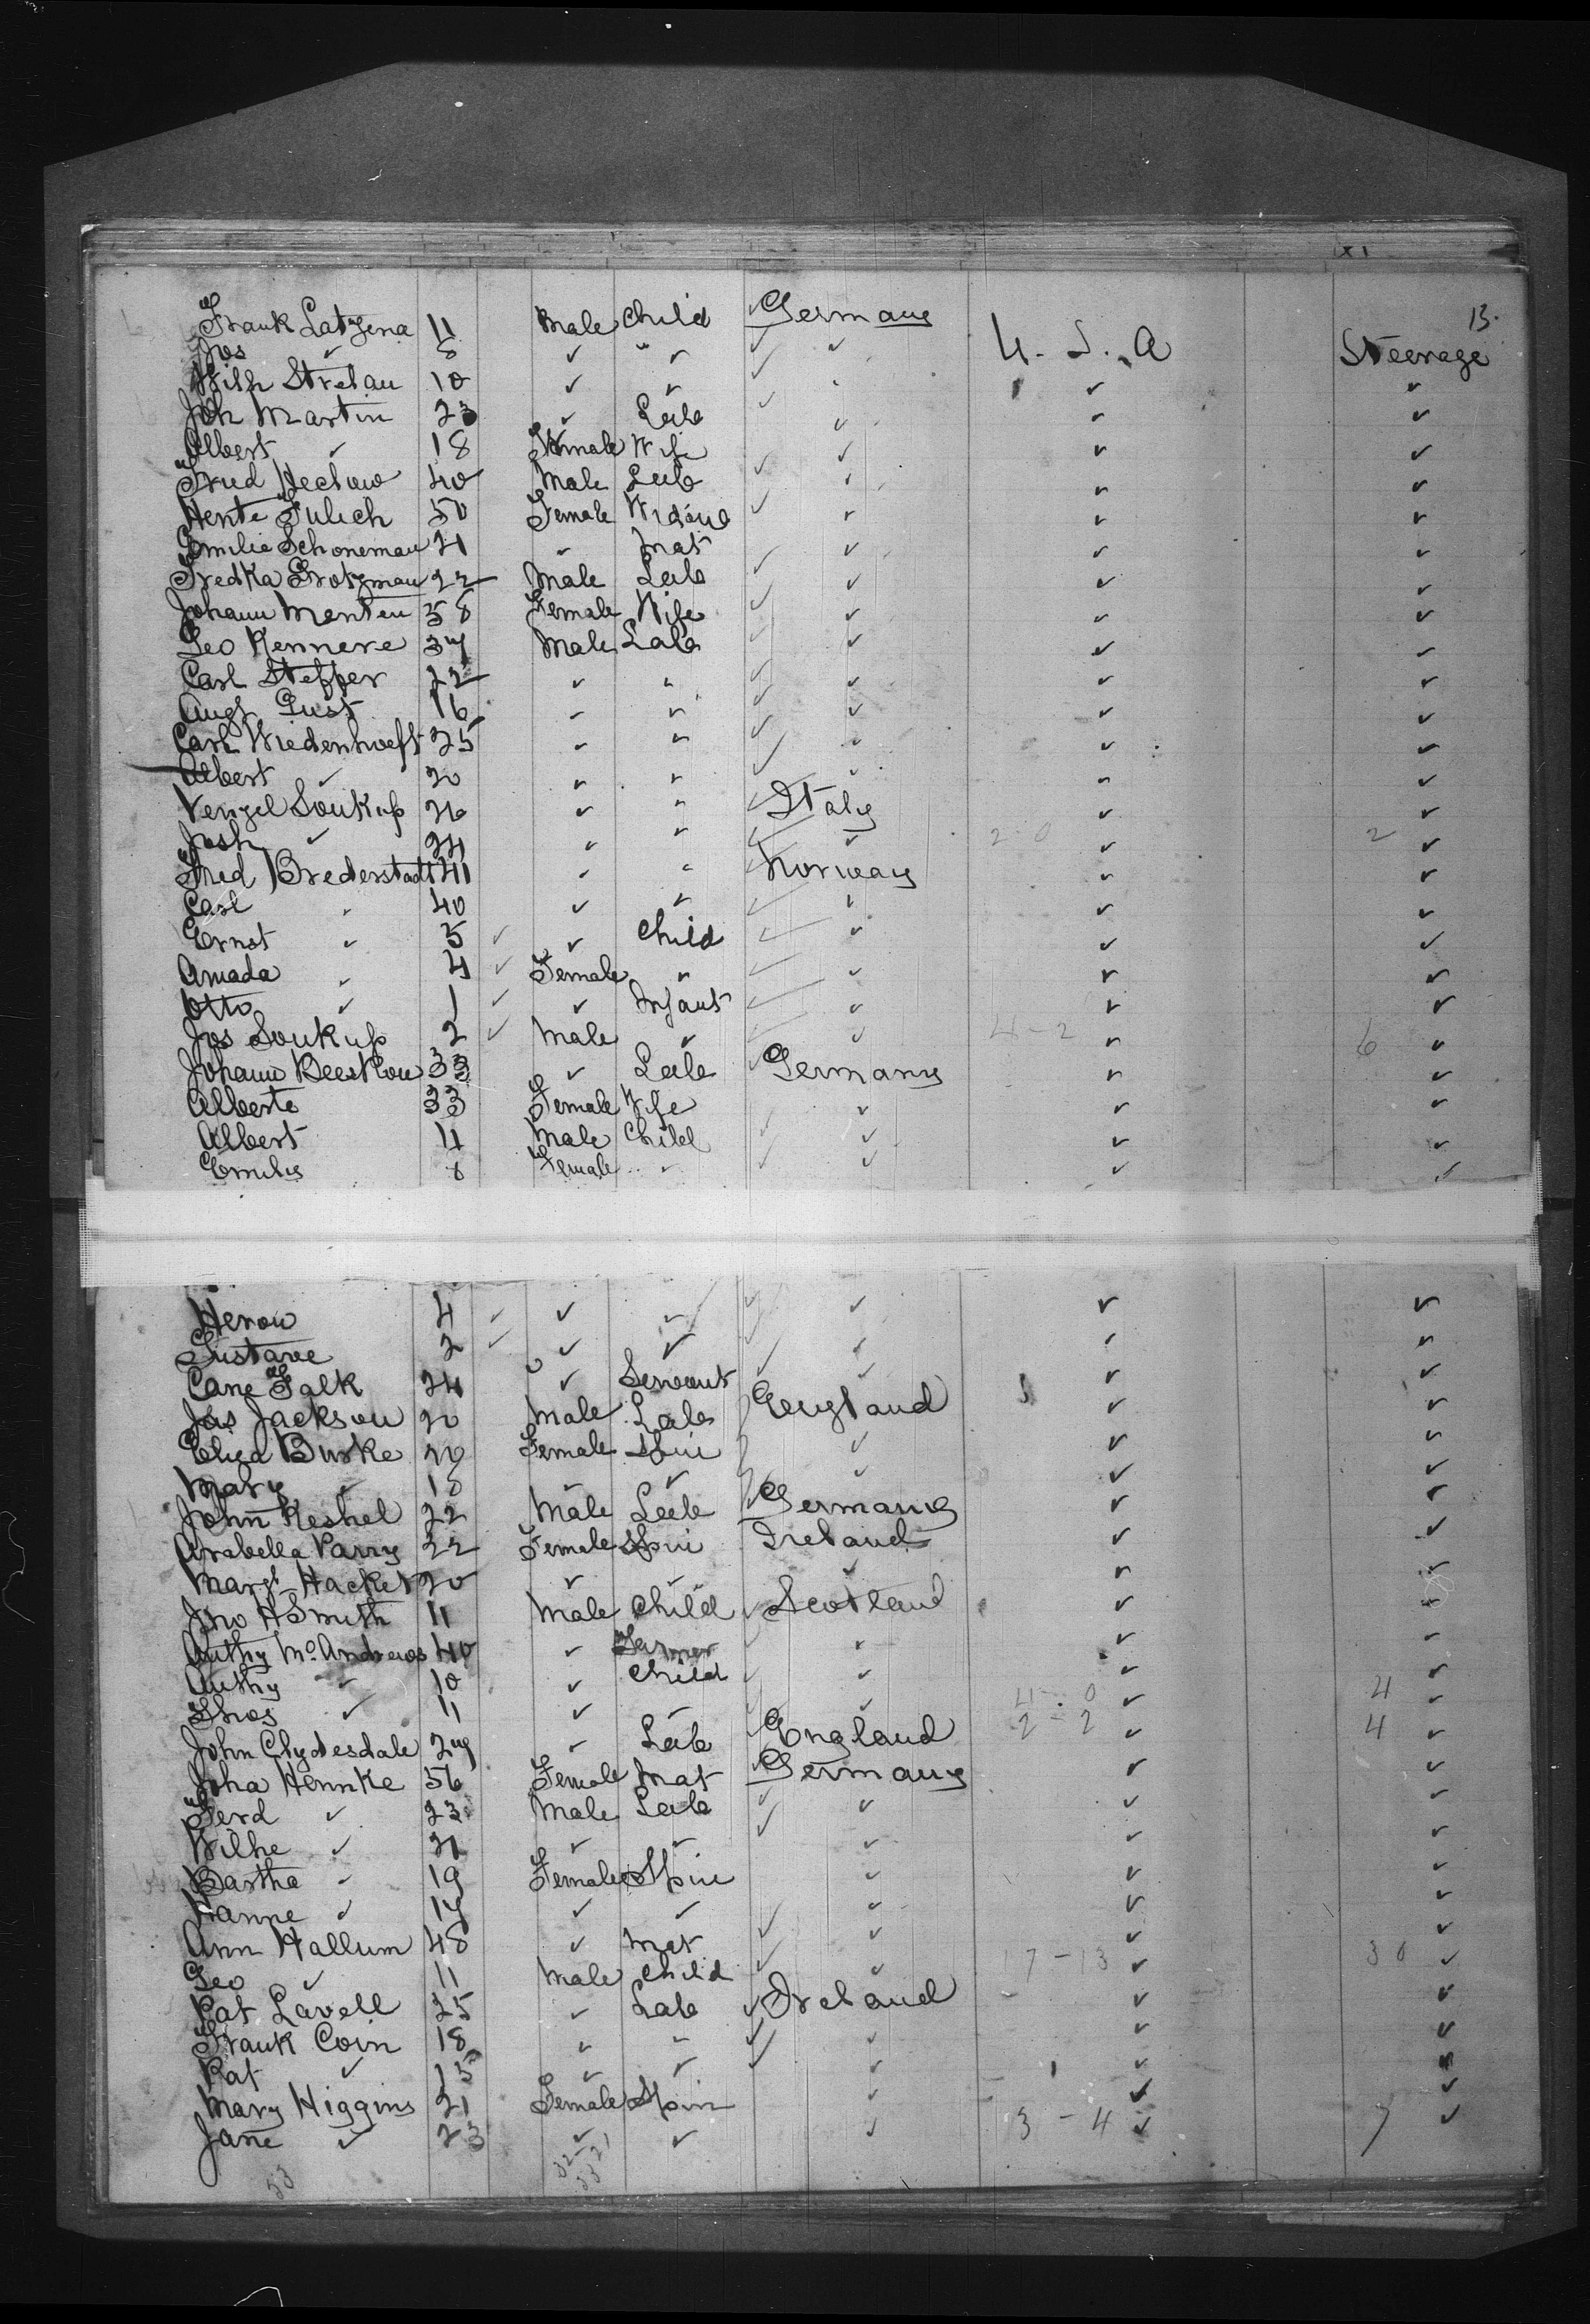 13.
Frank Latzena 11 Male Child Germany U. S. A Steerage
Jos ✓ 8 ✓ " ✓ ✓
Wilh Strelau 10 ✓ ✓ ✓ ✓
Joh Martin 23 ✓ Lab ✓ ✓ ✓
Albert ✓ 18 Female Wife ✓ ✓ ✓
Fred Hechow 40 Male Lab ✓ ✓ ✓
Hente Julich 50 Female ✓ ✓ ✓
Emilie Schoneman 21 ✓ Mat ✓ ✓ ✓
Fredka Grotzman 22 Male Lab ✓ ✓ ✓
Johann Menten 58 Female Wife ✓ ✓ ✓
Geo Kennere 37 Male Lab ✓ ✓ ✓
Carl Steffer 22 ✓ " ✓ ✓ ✓
Augt Gust 16 ✓ ✓ ✓ ✓ ✓
Carl Wiedenhoeft 25 ✓ ✓ ✓ ✓ ✓
Albert ✓ 20 ✓ ✓ ✓ ✓ ✓
Venzel Soukup 26 ✓ " Italy ✓ ✓
Josh ✓ 24 ✓ ✓ ✓ 2-0 ✓ 2 ✓
Fred Brederstadt 41 ✓ " Norway ✓ ✓
Carl " 40 ✓ ✓ ✓ ✓ ✓
Ernst ✓ 5 ✓ ✓ Child ✓ ✓ ✓
Amada ✓ 4 ✓ Female ✓ ✓ ✓ ✓
Otto ✓ 1 ✓ ✓ Infant ✓ ✓ ✓
Jos Soukup 2 ✓ Male ✓ ✓ 4-2 ✓ 6 ✓
Johann Beeskow 33 ✓ Lab Germany ✓ ✓
Alberte 33 Female Wife ✓ ✓ ✓
Albert 11 Male Child ✓ ✓ ✓
Emily 8 Female ✓ ✓ ✓ ✓
4 ✓ ✓ ✓ ✓ ✓ ✓
Gustave 2 ✓ ✓ ✓ ✓ ✓ ✓
Cane Falk 24 ✓ Servant ✓ ✓ ✓
Jas Jackson 20 Male Lab England ✓ ✓
Eliza Burke 20 Female Spin ✓ ✓ ✓
Mary ✓ 18 ✓ ✓ ✓ ✓ ✓
John Keshel 22 Male Lab Germany ✓ ✓
Arabella Parry 22 Female Spin Ireland ✓ ✓
Margt Hacket 20 ✓ ✓ ✓ ✓ ✓
Jno H Smith 11 Male Child Scotland ✓ ✓
Anthy McAndrews 40 ✓ Farmer ✓ ✓ ✓
Anthy ✓ 10 ✓ Child ✓ ✓ ✓
Thos ✓ 11 ✓ ✓ 4-0 ✓ 4 ✓
John Clydesdale 27 ✓ Lab England 2-2 ✓ 4 ✓
Joha Hennke 56 Female Mat Germany ✓ ✓
Ferd ✓ 23 Male Lab ✓ ✓ ✓
Wilhe ✓ 21 ✓ ✓ ✓ ✓ ✓
Bartha ✓ 19 Female Spin ✓ ✓ ✓
Hanne ✓ 17 ✓ ✓ ✓ ✓ ✓
Ann Hallum 48 ✓ Mat ✓ ✓ ✓
Geo ✓ 11 Male Child ✓ 17-13 ✓ 30 ✓
Pat Lavell 25 ✓ Lab Ireland ✓ ✓
Frank Coin 18 ✓ ✓ ✓ ✓ ✓
Pat ✓ 15 ✓ ✓ ✓ ✓ ✓
Mary Higgins 21 Female Spin ✓ ✓ ✓
Jane ✓ 23 ✓ ✓ ✓ 3-4 ✓ 7 ✓
53 32-21
53